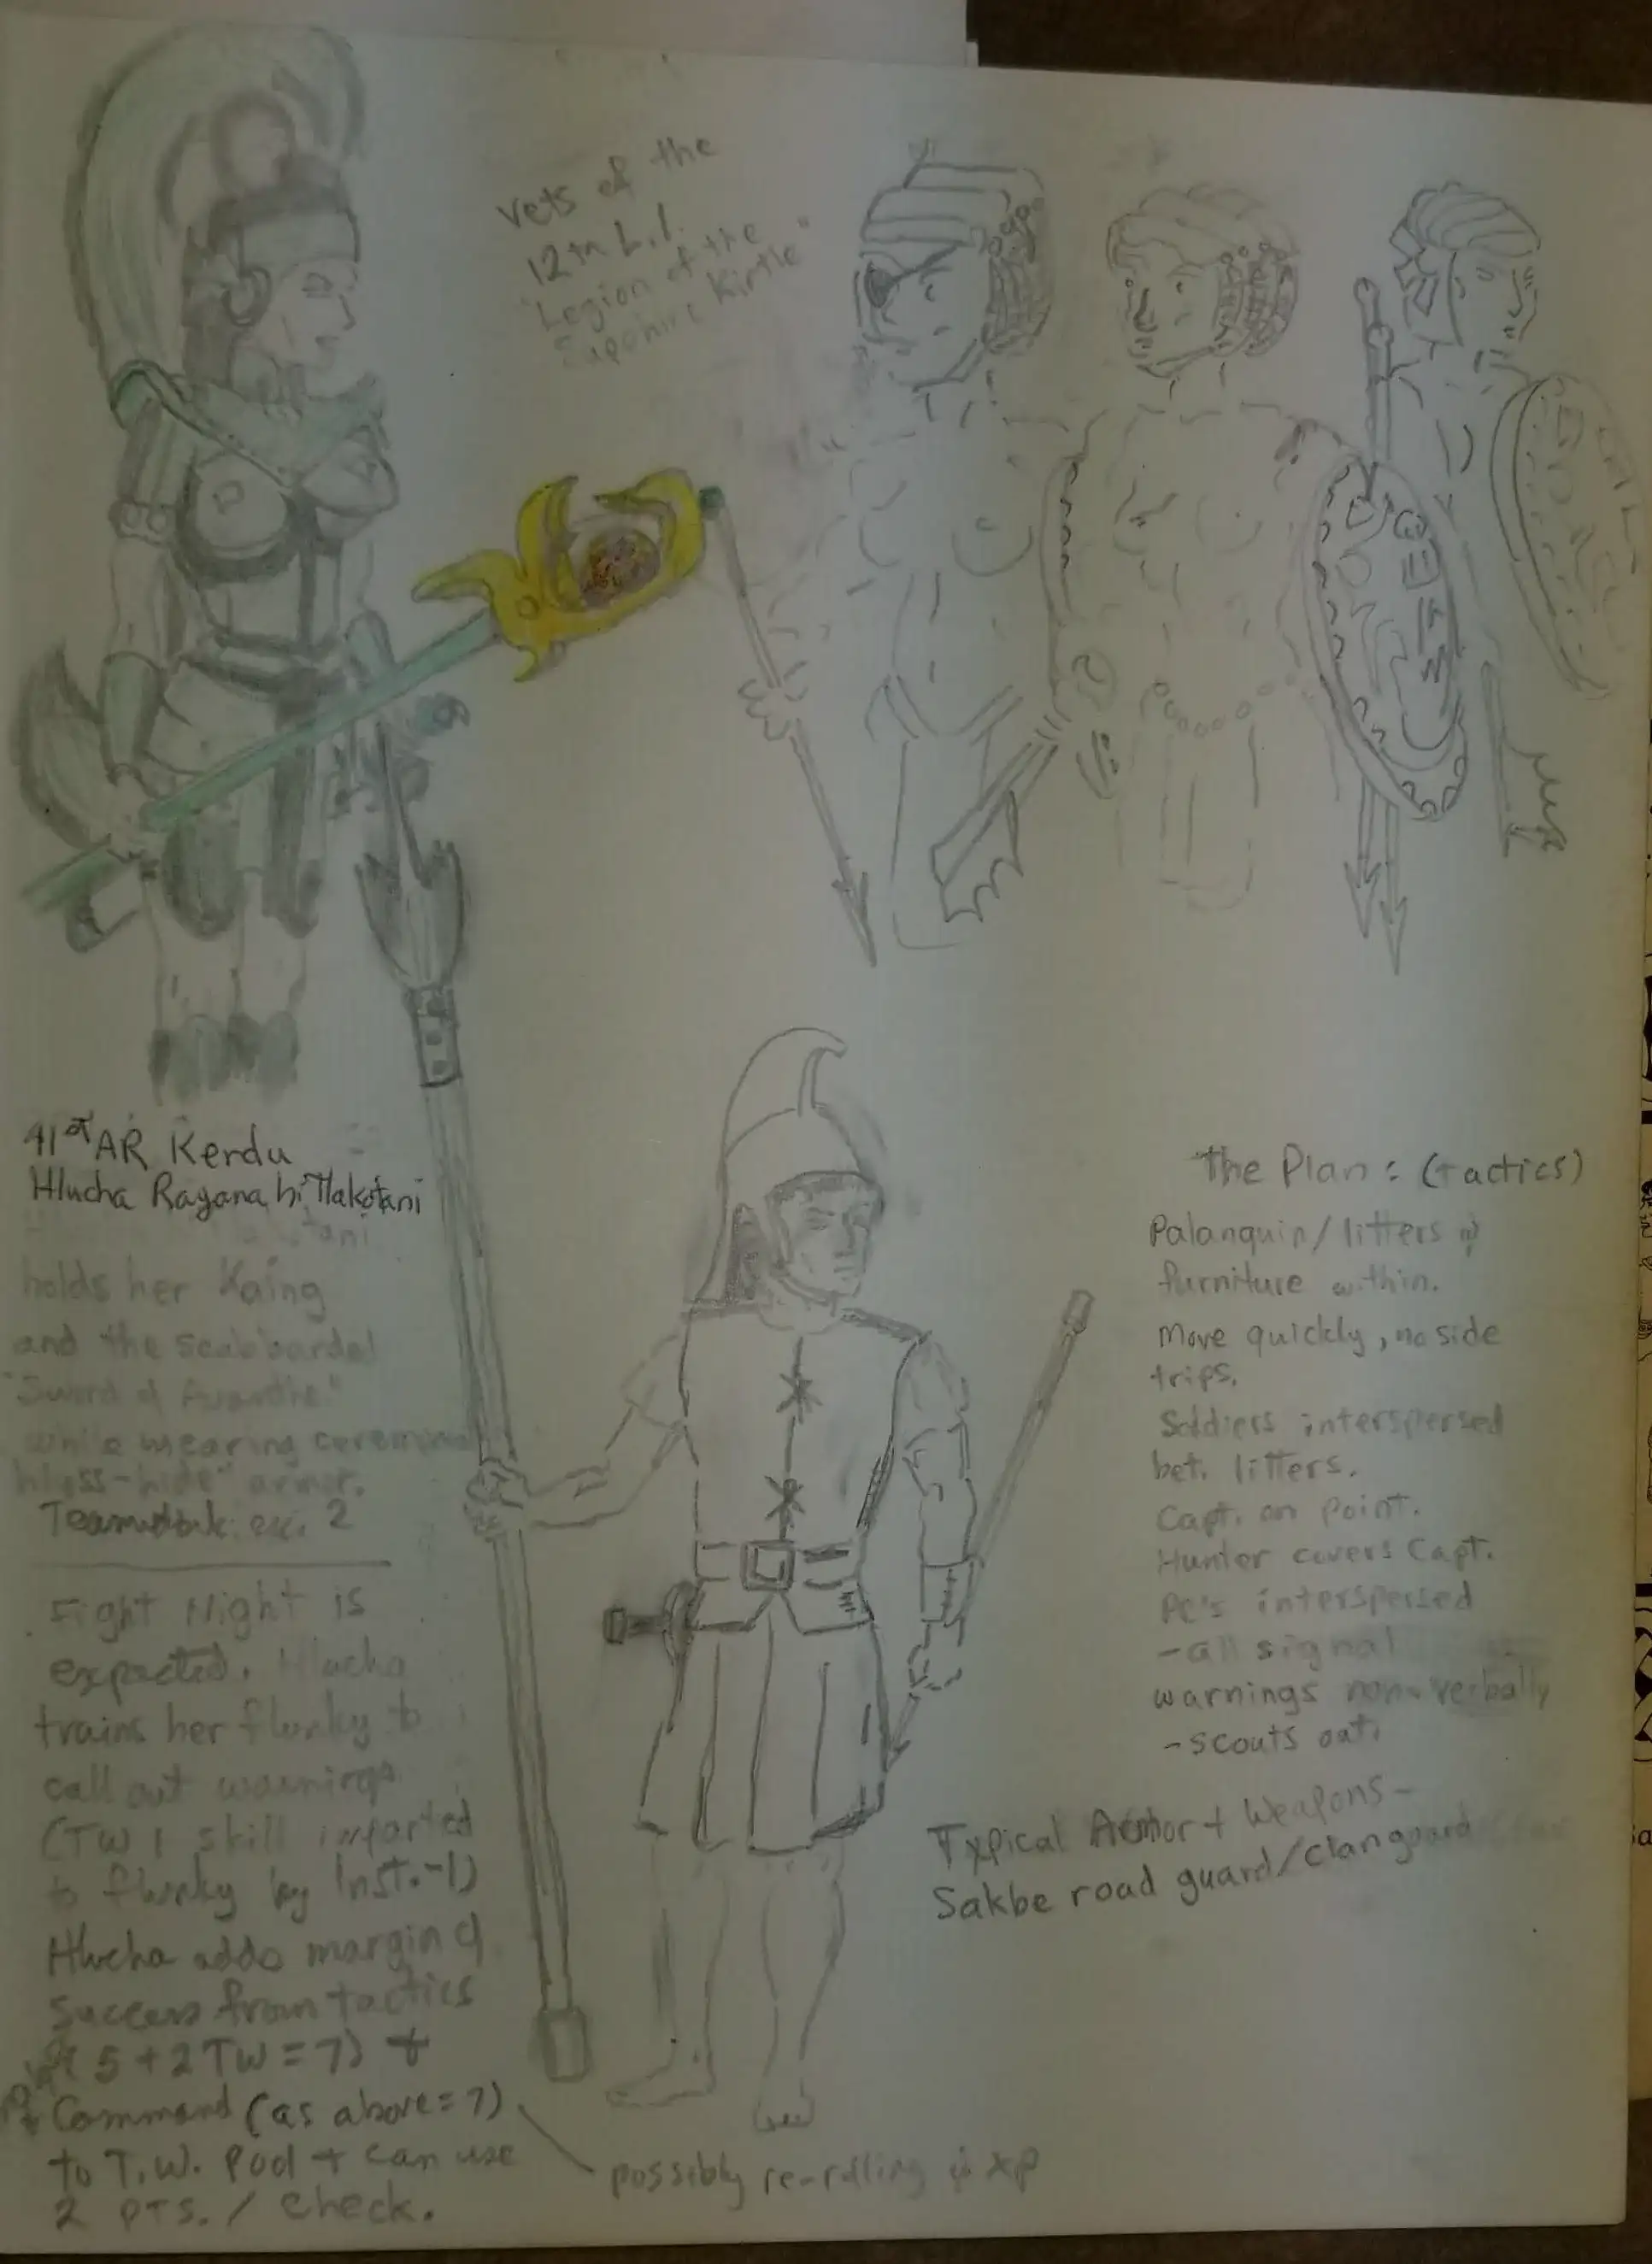 vets of the
12th L.I.
"Legion of the
Sapphire Kirtle"
41st AR Kerdu
Hlucha Ragana hi Tlakotani
holds her Kaing
and the scabbarded
"Sword of Avanthe"
while wearing ceremonial
hless-hide" armor.
Teamwork: ex. 2
Fight Night is
expected. Hlucha
trains her flunky to
call out warnings
(TW 1 skill imparted
to flunky by Inst.-1)
Hlucha adds margin of
success from tactics
(5 + 2 TW = 7) +
Command (as above = 7)
to T.W. Pool + can use
2 PTS. / check.
possibly re-rolling w xp
The Plan: (tactics)
Palanquin/litters w
furniture within.
Move quickly, no side
trips.
Soldiers interspersed
bet. litters.
Capt. on point.
Hunter covers Capt.
PC's interspersed
- all signal
warnings non-verbally
- scouts out.
Typical Armor + Weapons -
Sakbe road guard/clanguard